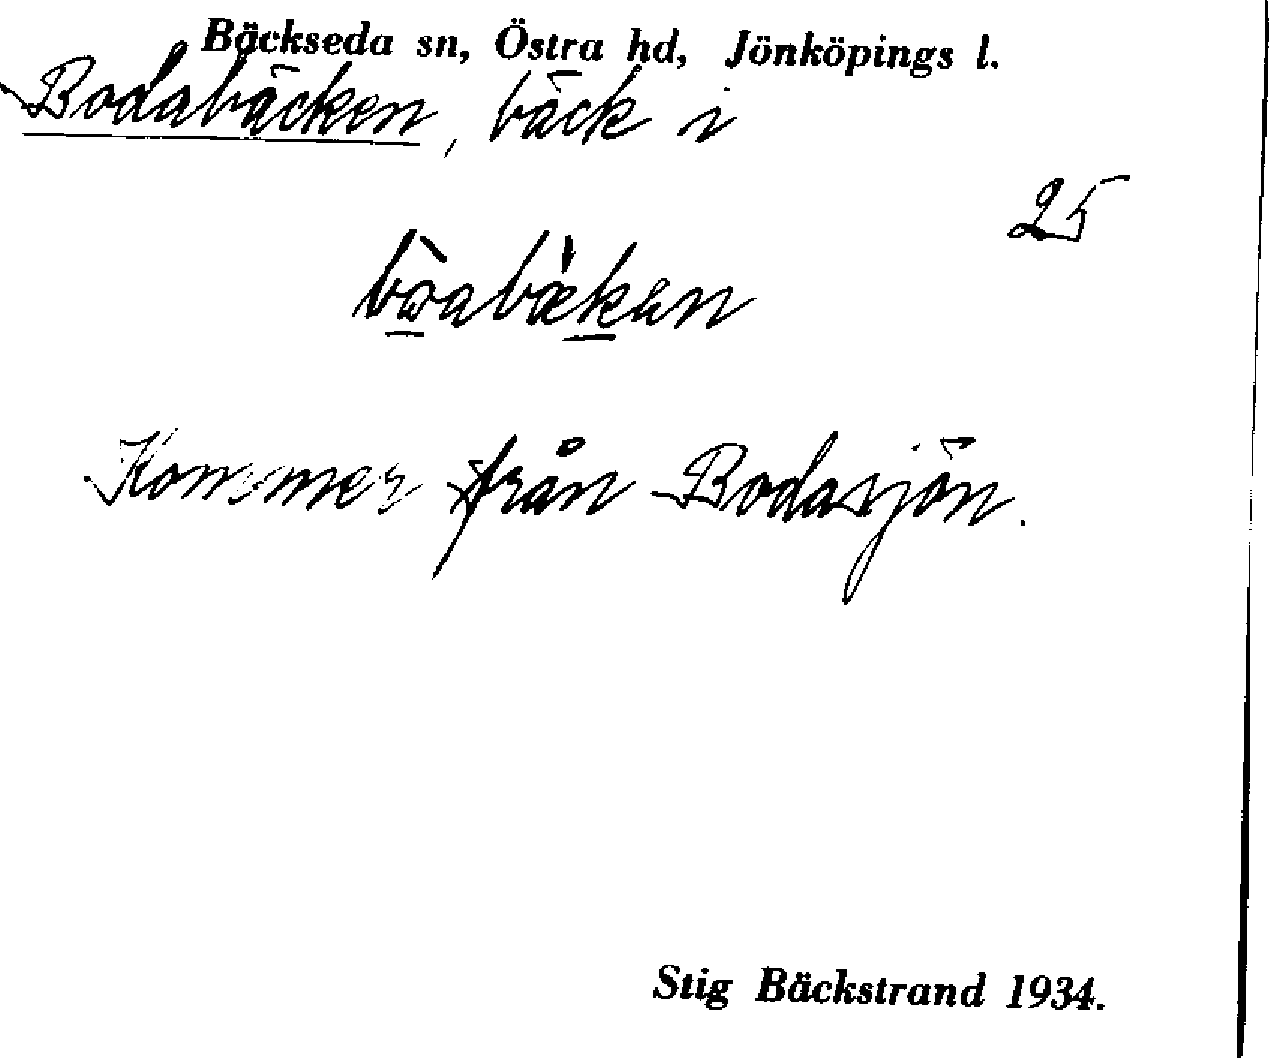 Bäckseda sn, Östra hd, Jönköpings l.
Bodabäcken, bäck i
25
Kommer från Bodasjön.
Stig Bäckstrand 1934.